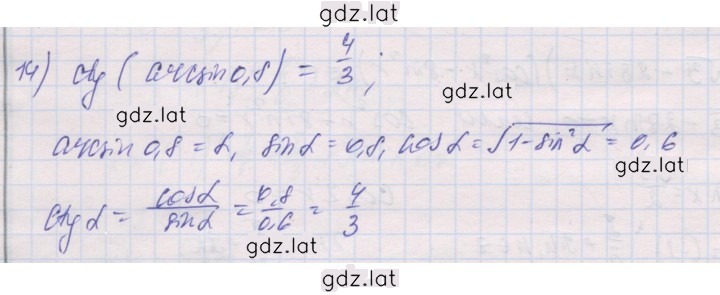 gdz.lat
14) ctg(arcsin 0,8) = 4/3;
gdz.lat
gdz.lat
arcsin 0,8 = α, sin α = 0,8, cos α = √(1-sin²α) = 0,6
gdz.lat
ctg α = cos α/sin α = 0,8/0,6 = 4/3
gdz.lat
gdz.lat
gdz.lat